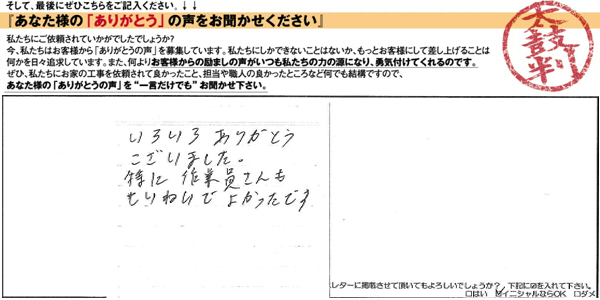 そして、最後にぜひこちらをご記入ください。↓↓
『あなた様の「ありがとう」の声をお聞かせください』
私たちにご依頼されていかがでしたでしょうか?
今、私たちはお客様から「ありがとうの声」を募集しています。私たちにしかできないことはないか、もっとお客様にして差し上げることは
何かを日々追求しています。また、何よりお客様からの励ましの声がいつも私たちの力の源になり、勇気付けてくれるのです。
ぜひ、私たちにお家の工事を依頼されて良かったこと、担当や職人の良かったところなど何でも結構ですので、
あなた様の「ありがとうの声」を“一言だけでも”お聞かせ下さい。
太鼓判
いろいろ ありがとう
ございました。
特に 作業員さんも
ていねいで よかったです
レターに掲載させて頂いてもよろしいでしょうか?下記に☑を入れて下さい。
□はい ☑イニシャルならOK □ダメ